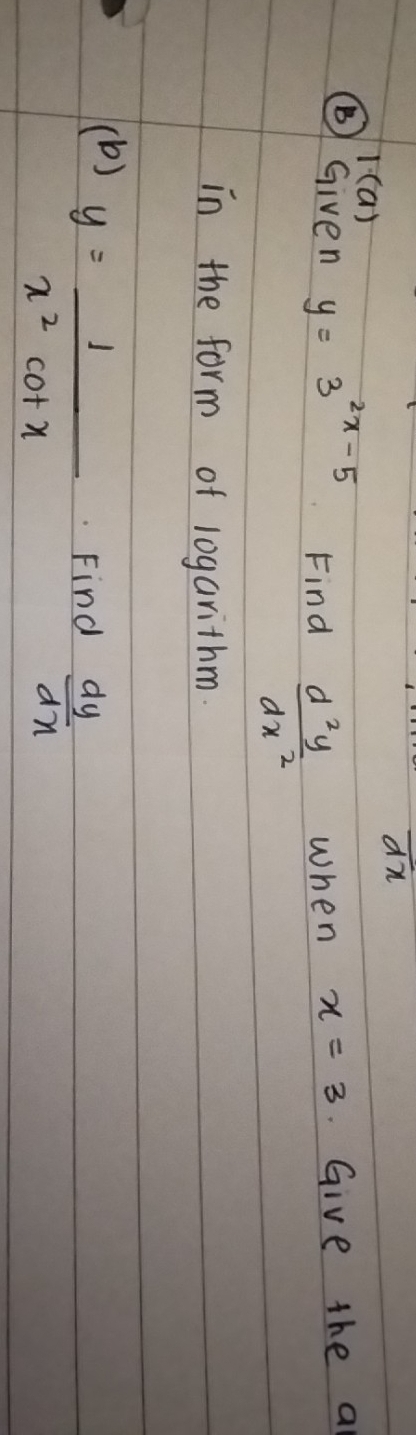 dx
1.(a)
(B) Given y = 3^{2x-5}. Find d²y/dx² when x = 3. Give the
in the form of logarithm.
(b) y = 1/(x² cot x). Find dy/dx